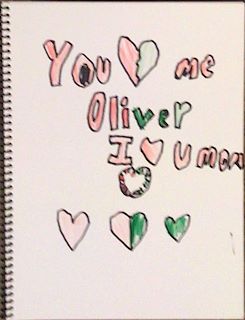 You ♥ me
Oliver
I ♥ U mom